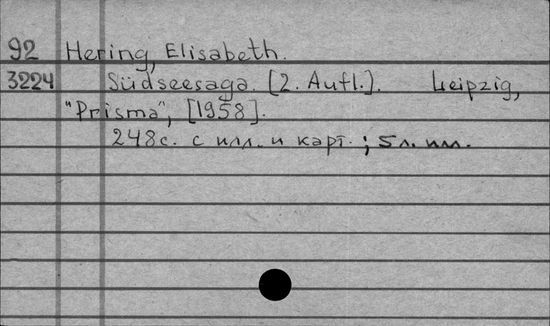 92 Hering, Elisabeth.
3224 Südseesaga. [2. Aufl.]. Leipzig,
"Prisma", [1958].
248с. с илл. и карт. ; 5 л. илл.